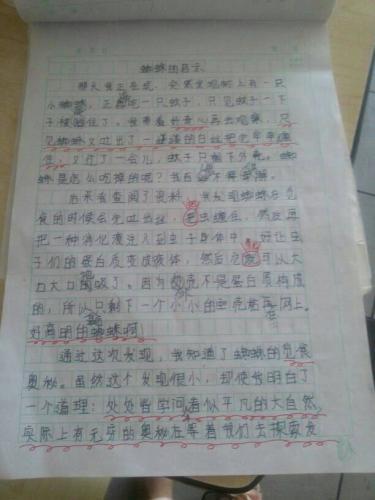 蜘蛛的启示
那天我正在玩,突然发现树上有一只
小蜘蛛,正在吃一只蚊子,只见蚊子一下
子被粘住了。我带着好奇心再去观察,只
见蜘蛛又吐出了一缕缕的白丝把它牢牢缠
住,又过了一会儿,蚊子只剩下外壳。蜘
蛛是怎么吃掉的呢?我百思不得其解。
后来我查阅了资料,我发现蜘蛛在觅
食的时候会先吐出丝,把虫缠住,然后再
把一种消化液注入到虫子身体中,好让虫
子们的蛋白质变成液体,然后它就可以大
口大口的吸了。因为外壳不是蛋白质构成
的,所以只剩下一个小小的空壳在网上。
好高明的蜘蛛啊!
通过这次发现,我知道了蜘蛛的觅食
奥秘。虽然这个发现很小,却使我明白了
一个道理:处处皆学问,看似平凡的大自然,
实际上有无穷的奥秘在等着我们去探索发